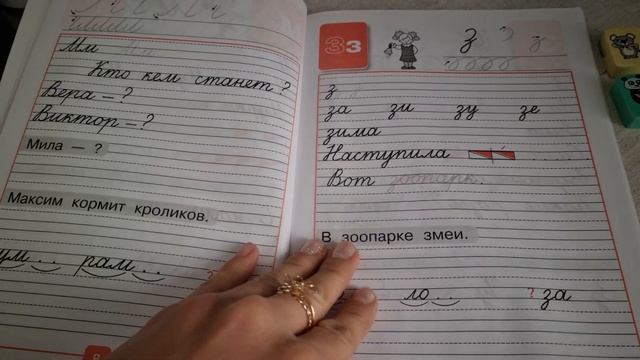 Мм
Кто кем станет?
Вера – ?
Виктор – ?
Мила — ?
Максим кормит кроликов.
ум.. рам.. ?
8
Зз
з
з
за зи зу зе
зима
Наступила
Вот зоопарк.
В зоопарке змеи.
ло.. ? за